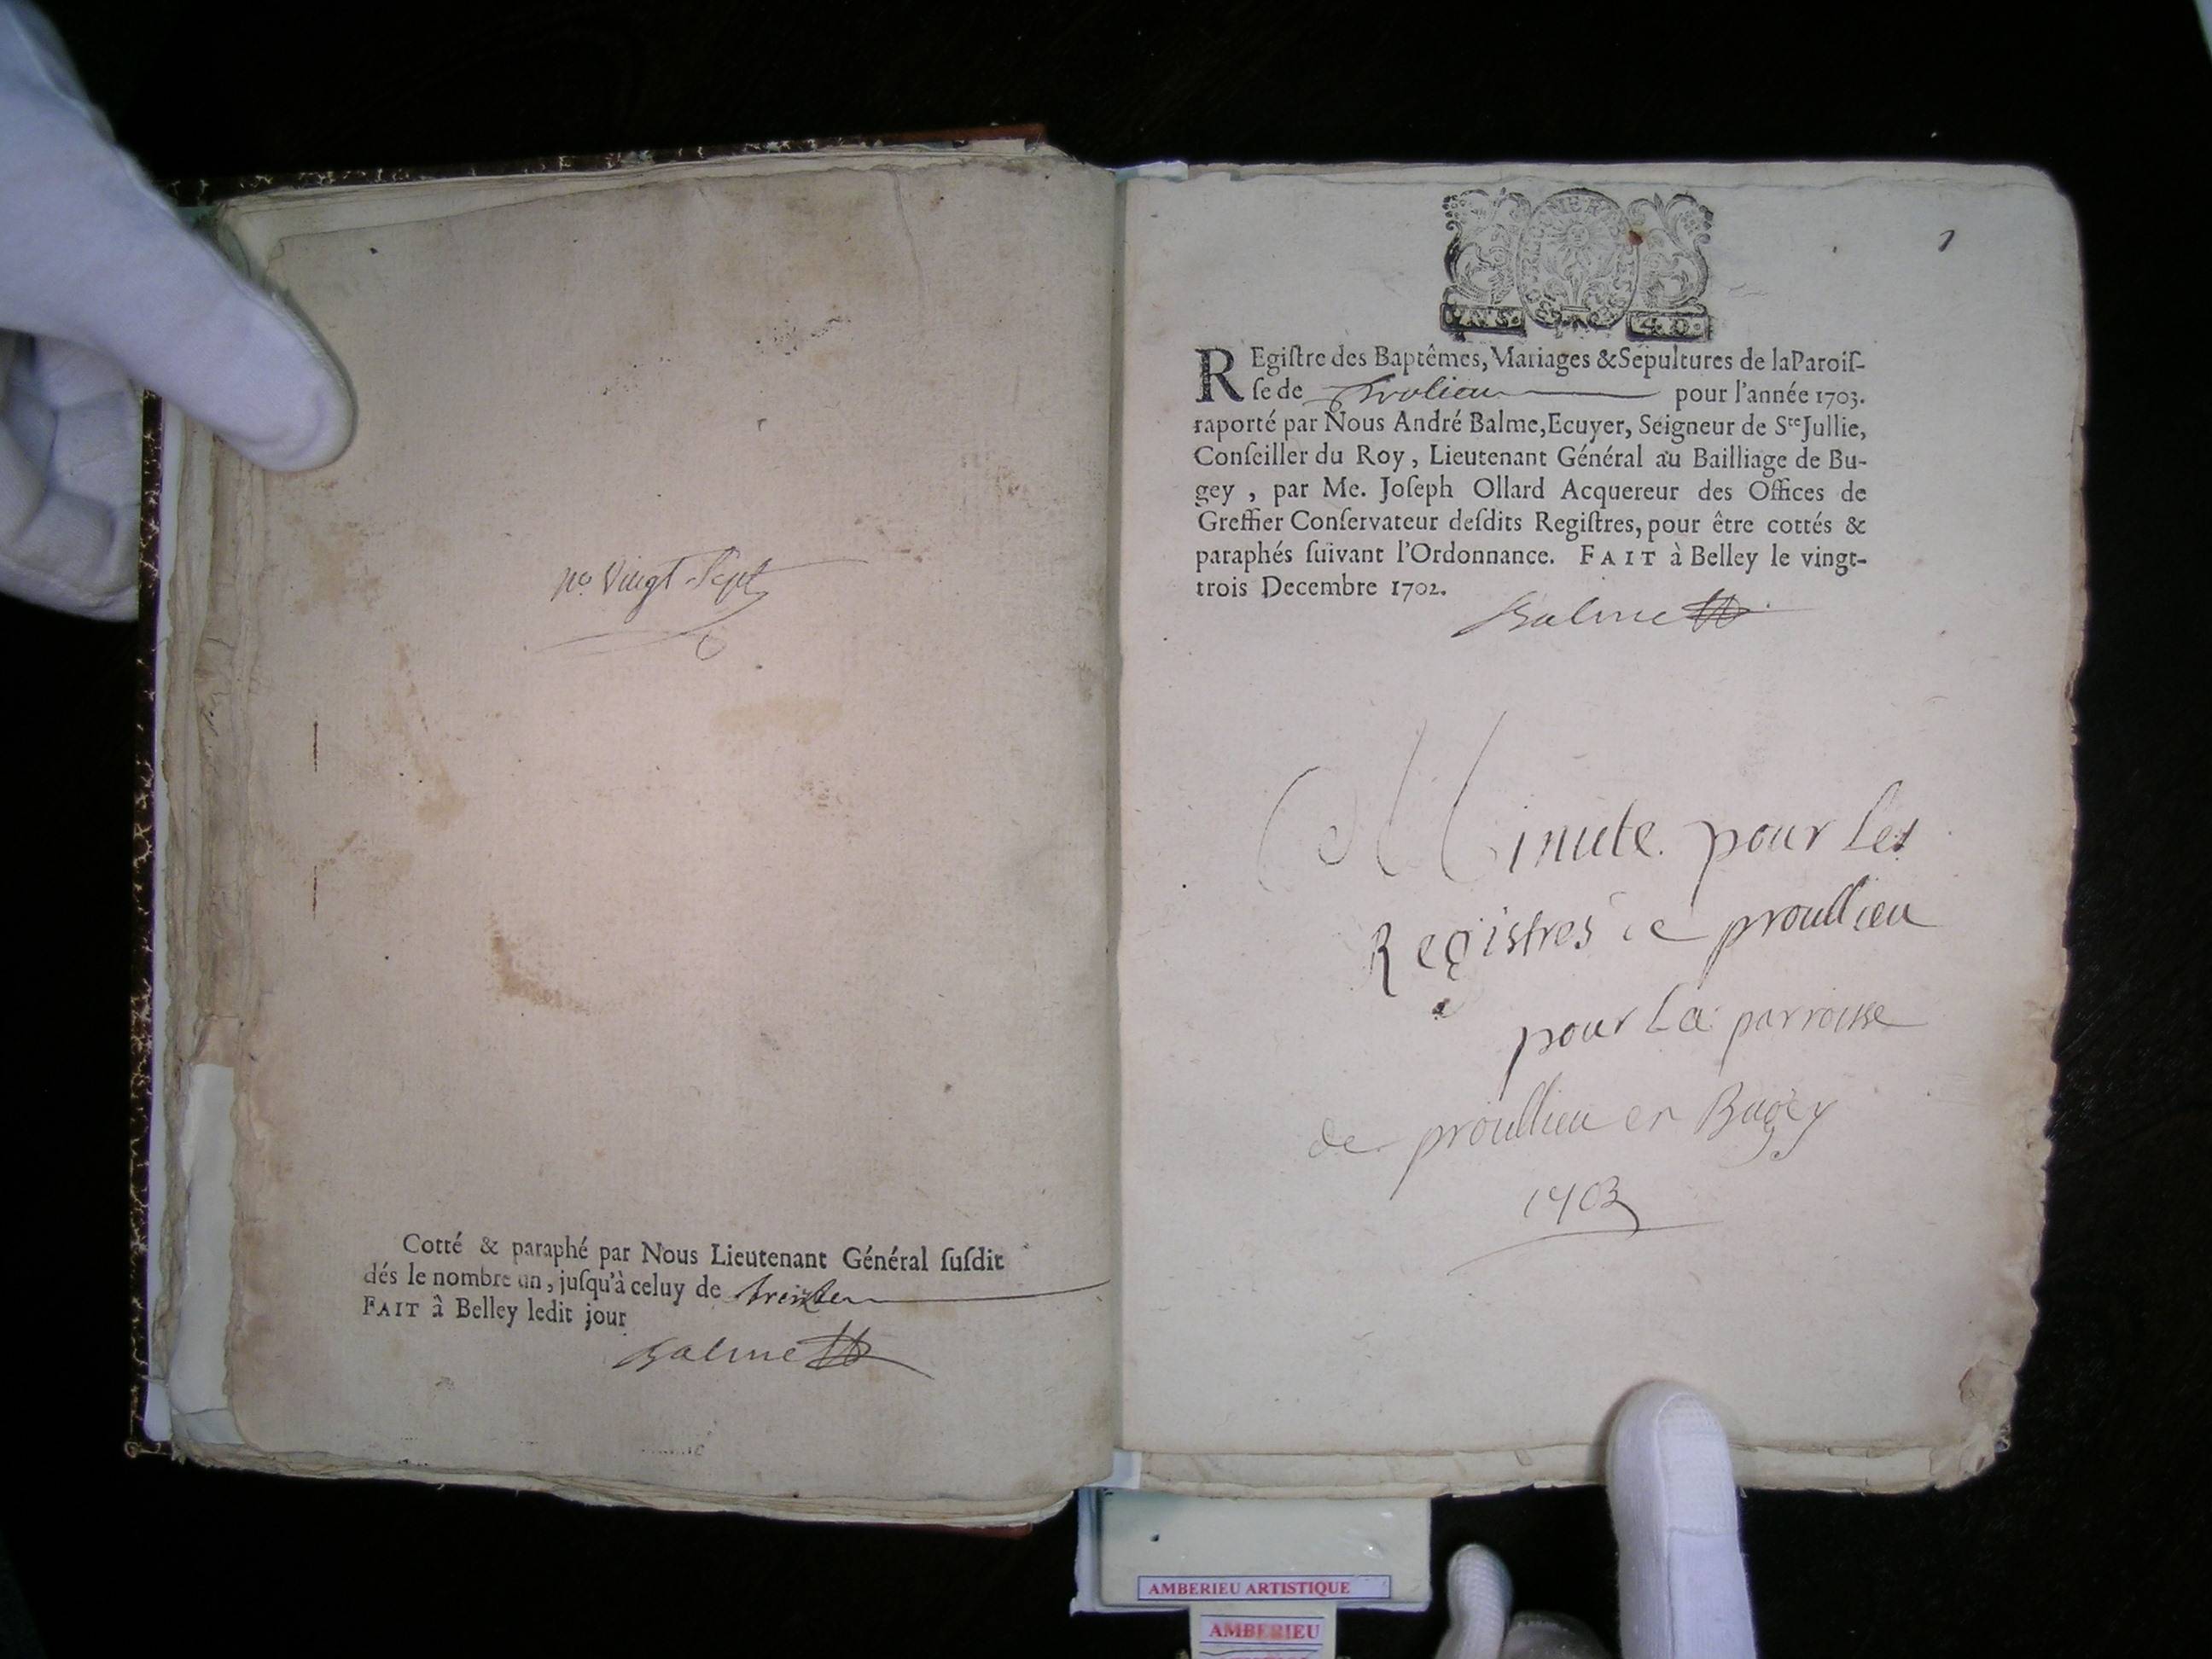 no. Vingt-Sept
Cotté & paraphé par Nous Lieutenant Général ſuſdit
dés le nombre un, juſqu'à celuy de
FAIT à Belley ledit jour
Balme
1
REgiſtre des Baptêmes, Mariages & Sépultures de la Paroiſ-
ſe de Proulieu pour l'année 1703.
raporté par Nous André Balme, Ecuyer, Seigneur de Ste Jullie,
Conſeiller du Roy, Lieutenant Général au Bailliage de Bu-
gey, par Me. Joſeph Ollard Acquereur des Offices de
Greffier Conſervateur deſdits Regiſtres, pour être cottés &
paraphés ſuivant l'Ordonnance. FAIT à Belley le vingt-
trois Decembre 1702.
Balme
Minute pour Les
Registres de proullieu
pour La parroisse
de proullieu en Bugey
1703
AMBERIEU ARTISTIQUE
AMBERIEU